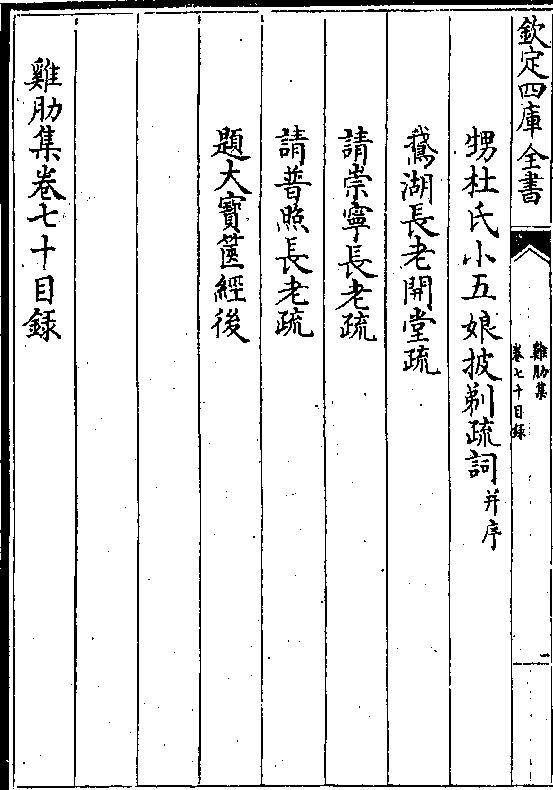 欽定四庫全書
雞肋集
卷七十目録
一
甥杜氏小五娘披剃疏詞并序
鵞湖長老開堂疏
請崇寧長老疏
請普照長老疏
題大寳篋經後
雞肋集卷七十目録